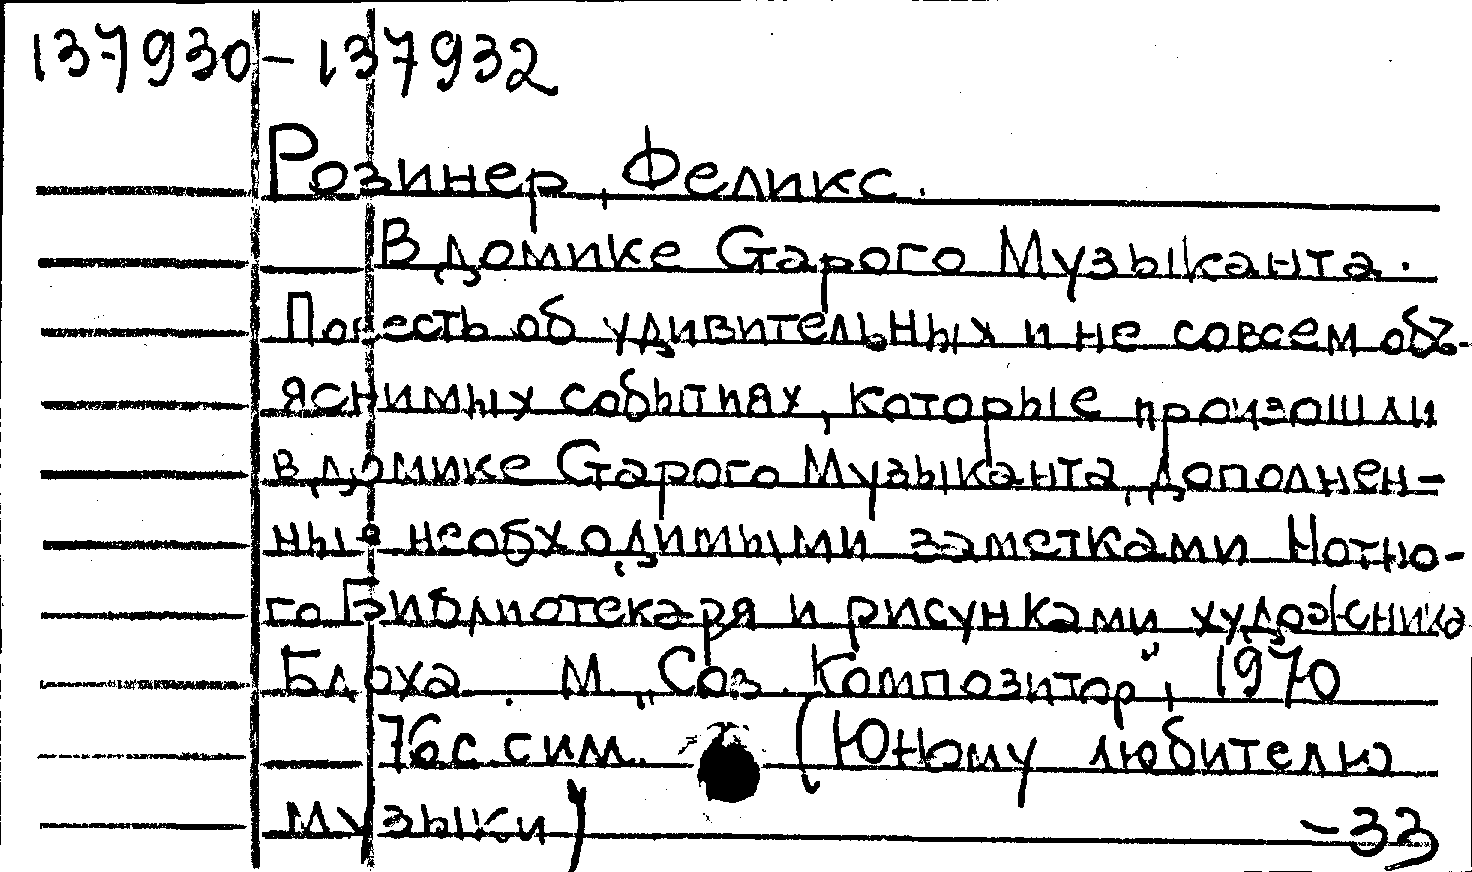 137930 - 137932
Розинер, Феликс.
В домике Старого Музыканта.
Повесть об удивительных и не совсем объ-
яснимых событиях, которые произошли
в домике Старого Музыканта, дополнен-
ные необходимыми заметками Нотно-
го Библиотекаря и рисунками художника
Блоха. М. „Сов. Композитор", 1970
76 с. с илл. (Юному любителю
музыки)
-33